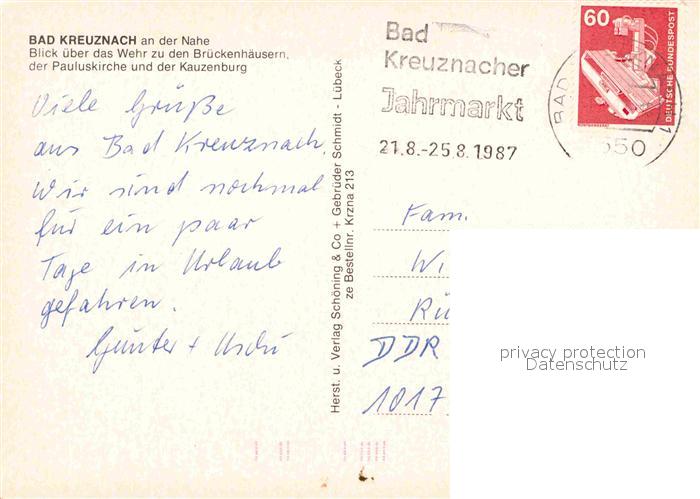 BAD KREUZNACH an der Nahe
Blick über das Wehr zu den Brückenhäusern,
der Pauluskirche und der Kauzenburg
Viele Grüße
aus Bad Kreuznach,
wir sind nochmal
für ein paar
Tage in Urlaub
gefahren.
Günter + Uschi
Herst. u. Verlag Schöning & Co + Gebrüder Schmidt - Lübeck
ze Bestellnr. Krzna 213
Bad
Kreuznacher
Jahrmarkt
21.8.-25.8.1987
60
DEUTSCHE BUNDESPOST
BAD
550
Fam.
Wi
Rü
DDR
1017
privacy protection
Datenschutz